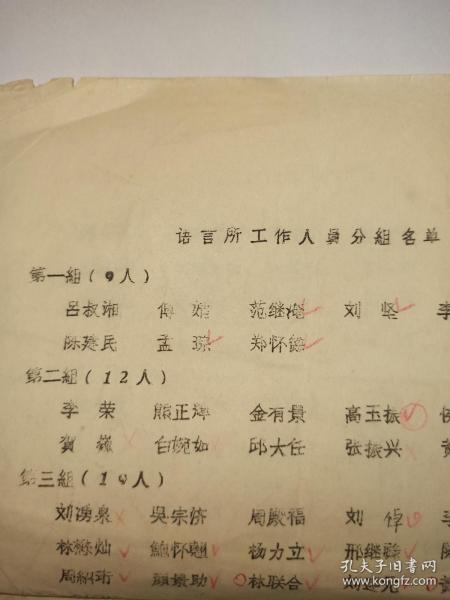 语言所工作人員分組名单
第一組(9人)
呂叔湘 傅婧 范继淹 刘坚 李
陈建民 孟琮 郑怀德
第二組(12人)
李荣 熊正辉 金有景 高玉振 侯
賀巍 白婉如 邱大任 张振兴 黄
第三組(19人)
刘涌泉 吳宗济 周殿福 刘倬 李
林 鮑怀翹 杨力立 邢继禄
周紹珩 景助 林联合
孔夫子旧书网